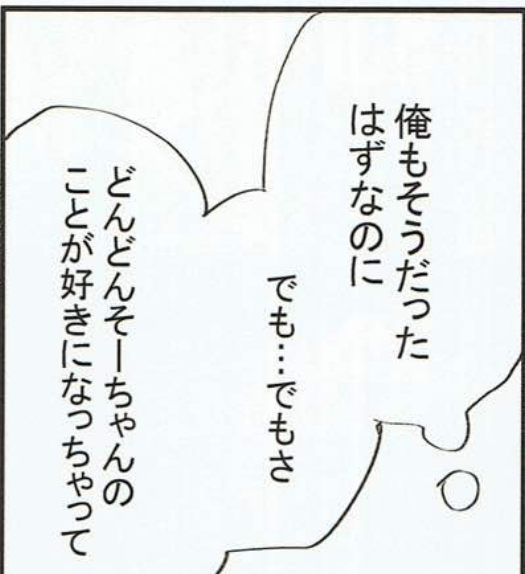 俺もそうだった
はずなのに
でも…でもさ
どんどんそーちゃんの
ことが好きになっちゃって